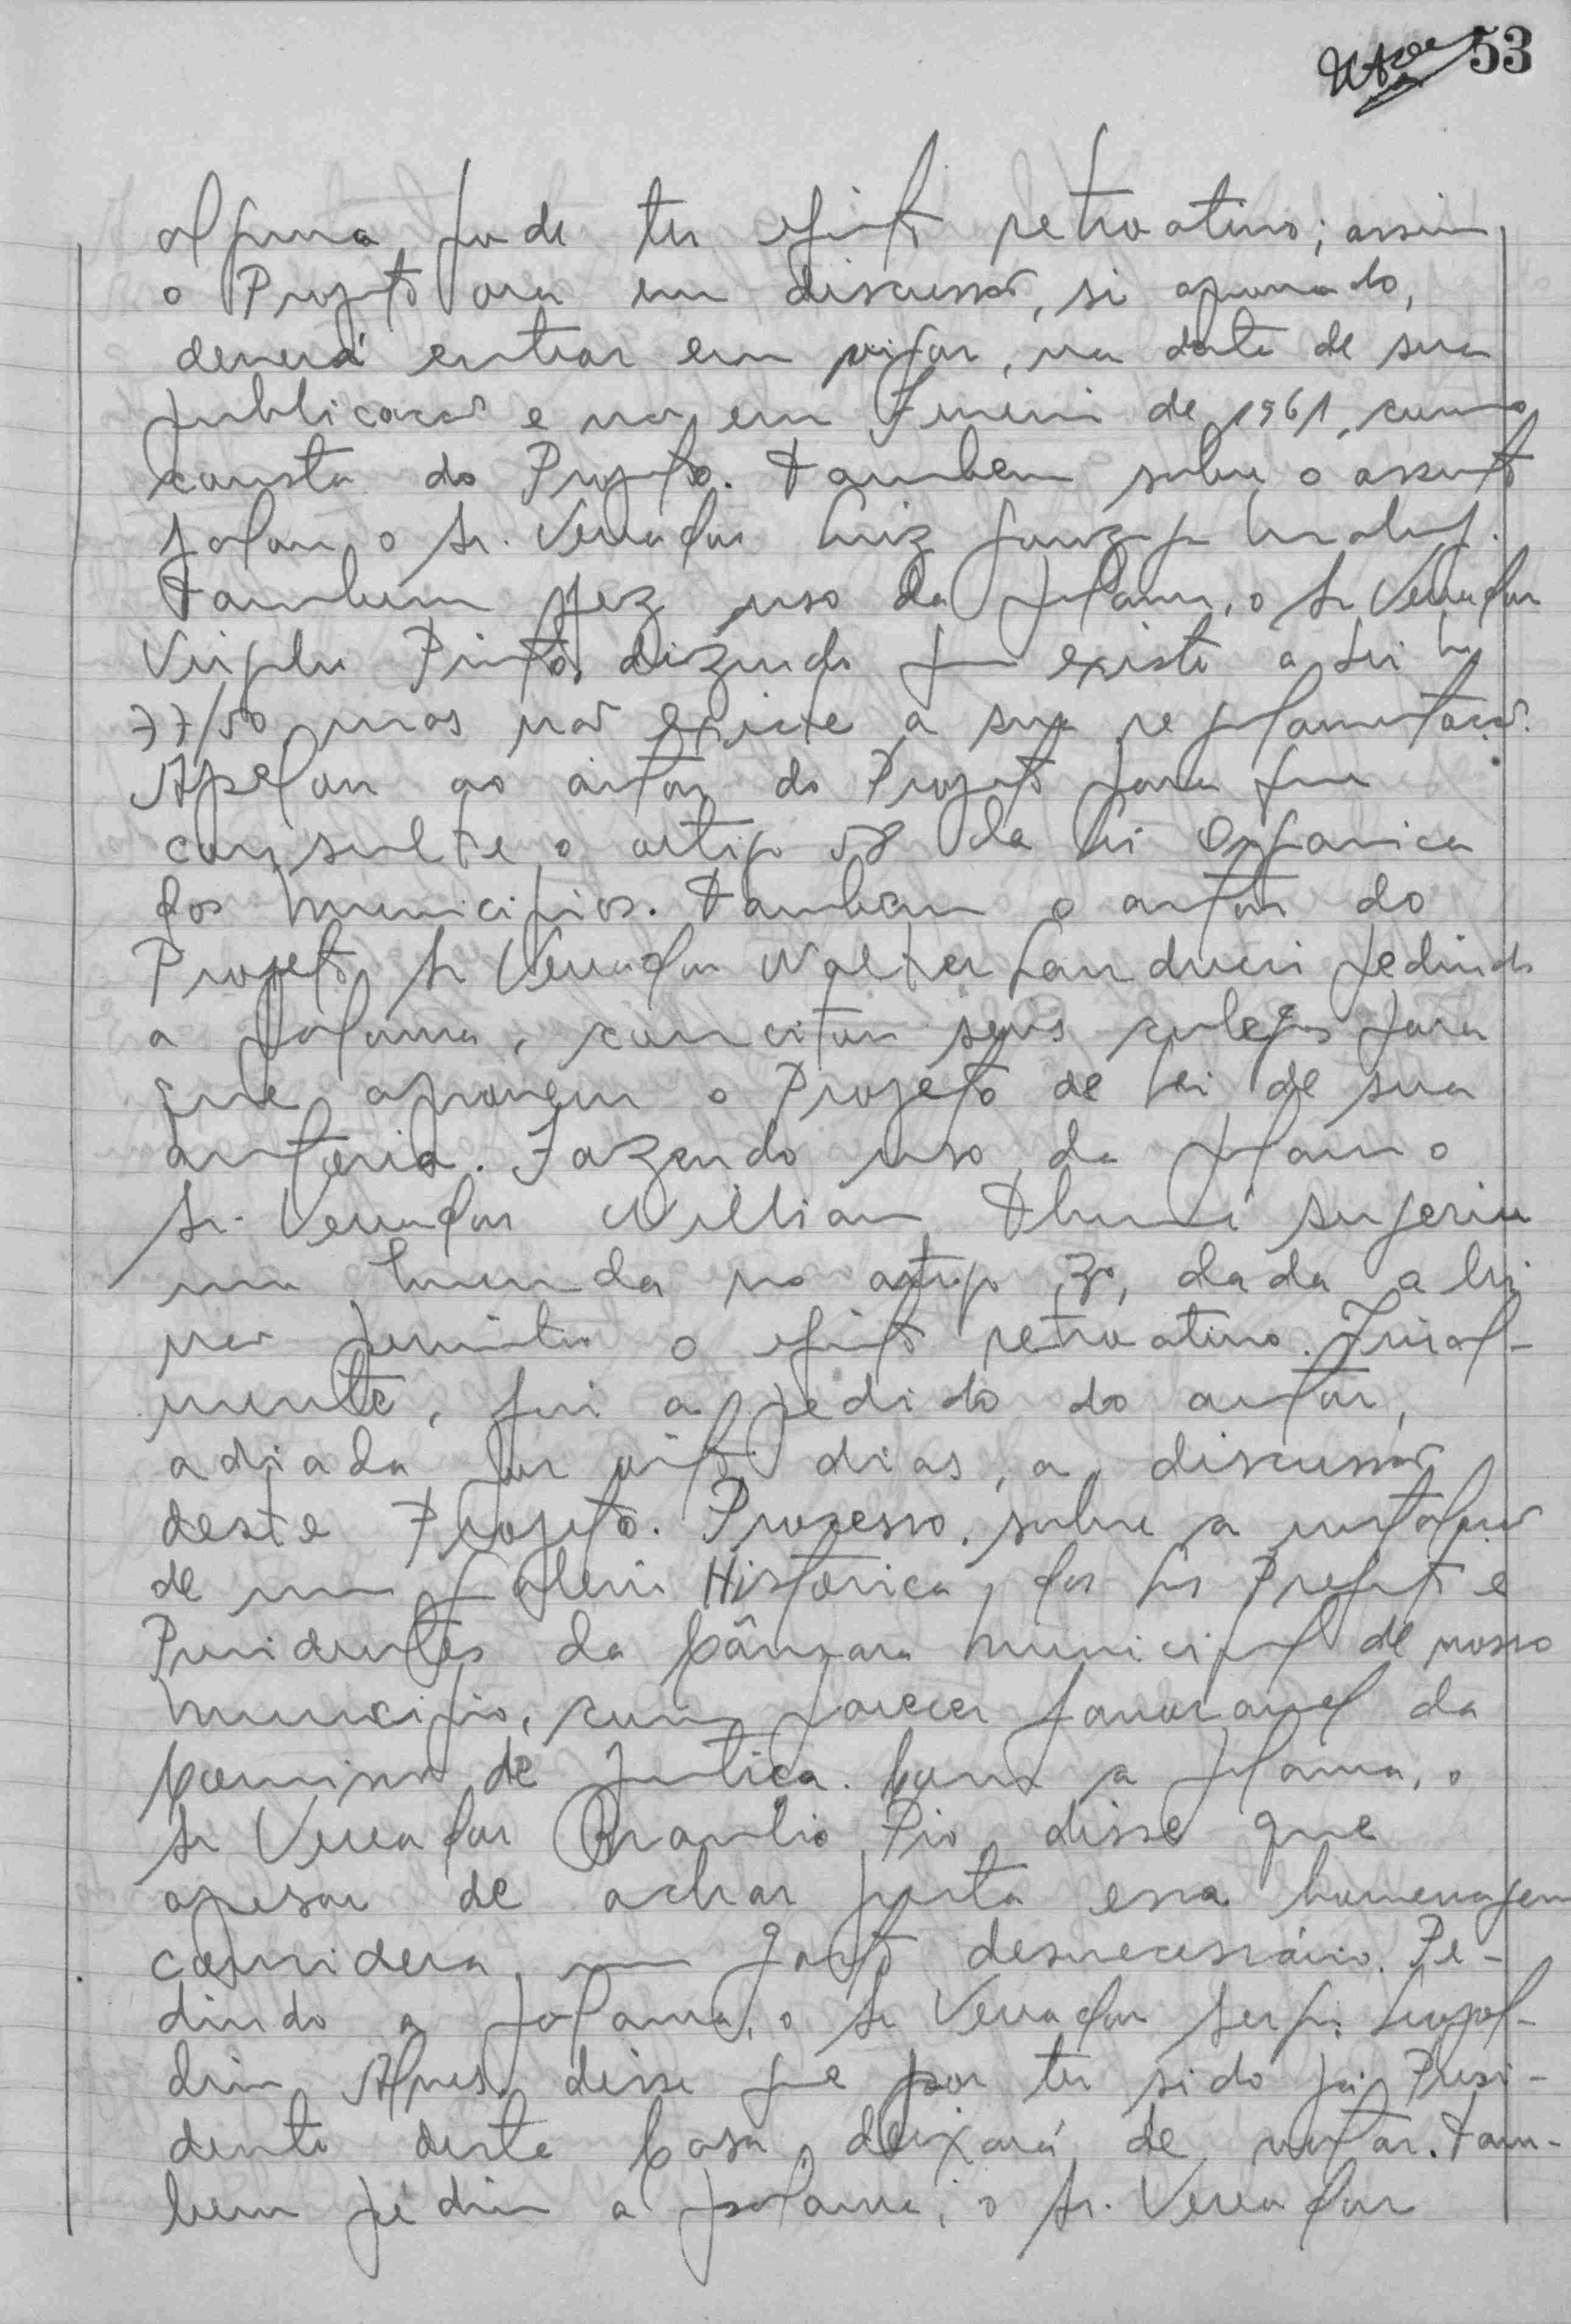 53
alguma pode ter efeito retroativo; assim
o Projeto ora em discussão, si aprovado,
deverá entrar em vigor, na data de sua
publicação e não em Janeiro de 1961, como
consta do Projeto. Tambem sobre o assunto
falou o Sr. Vereador Luiz Gonzaga
Tambem fez uso da palavra, o Sr Vereador
Virgilio Pinto, dizendo que existe a Lei nº
77/50 mas não existe a sua regulamentação.
Apelou ao autor do Projeto para que
consulte o artigo 58 da Lei Organica
dos Municipios. Tambem o autor do
Projeto, Sr Vereador Walter Landucci pedindo
a palavra, concitou seus colegas para
que aprovem o Projeto de Lei de sua
autoria. Fazendo uso da palavra o
Sr. Vereador Willian sugeriu
uma Emenda no artigo 3º, dada a lei
não permitir o efeito retroativo. Final-
mente, foi a pedido do autor,
adiada por oito dias, a discussão
deste Projeto. Processo sobre a instalação
de uma Galeria Historica, dos Srs Prefeitos e
Presidentes da Câmara Municipal de nosso
Municipio, com parecer favoravel da
Comissão de Justiça. Com a palavra, o
Sr Vereador Braulio Pio, disse que
apesar de achar justa essa homenagem
considera um gasto desnecessário. Pe-
dindo a palavra, o Sr Vereador Sergio Leopol-
dino Alves, disse que por ter sido já Presi-
dente desta Casa, deixará de votar. Tam-
bem pediu a palavra, o Sr. Vereador